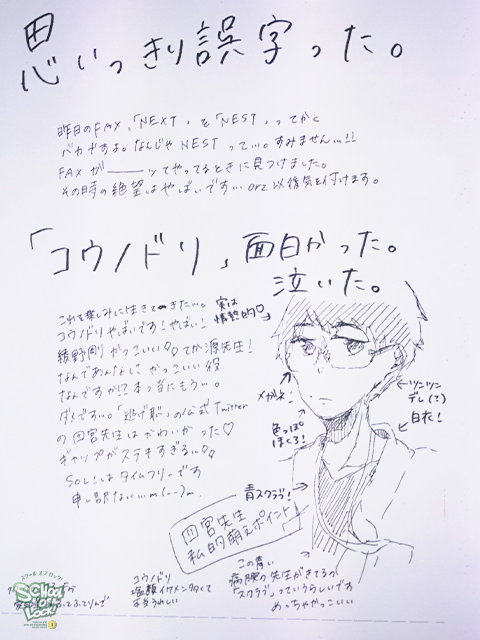 思いっきり誤字った。
昨日のFAX、「NEXT」を「NEST」ってかく
バカですよ。なんじゃNESTって…。すみません…!!
FAXがーーーッてやってるときに見つけました。
その時の絶望はやばいです…orz 以後気を付けます。
「コウノドリ」面白かった。
泣いた。
これを楽しみに生きてきた…。
コウノドリやばいです!やばい!
綾野剛かっこいい♡♡てか源先生!
なんであんなにかっこいい役
なんですか!?本当にもう…。
ダメです…。「逃げ恥」の公式Twitter
の四宮先生はかわいかった♡
ギャップがステキすぎる…♡
SOL!はタイムフリーです
申し訳ない…m(--)m
実は
情熱的♡
メガネ!
色っぽ
ほくろ!
ツンツン
デレ(?)
白衣!
青スクラブ!
四宮先生
私的萌えポイント
この青い
病院の先生がきてるの
「スクラブ」っていうらしいです
めっちゃかっこいい
コウノドリ
スクール オブ ロック!
SCHOOL OF LOCK!